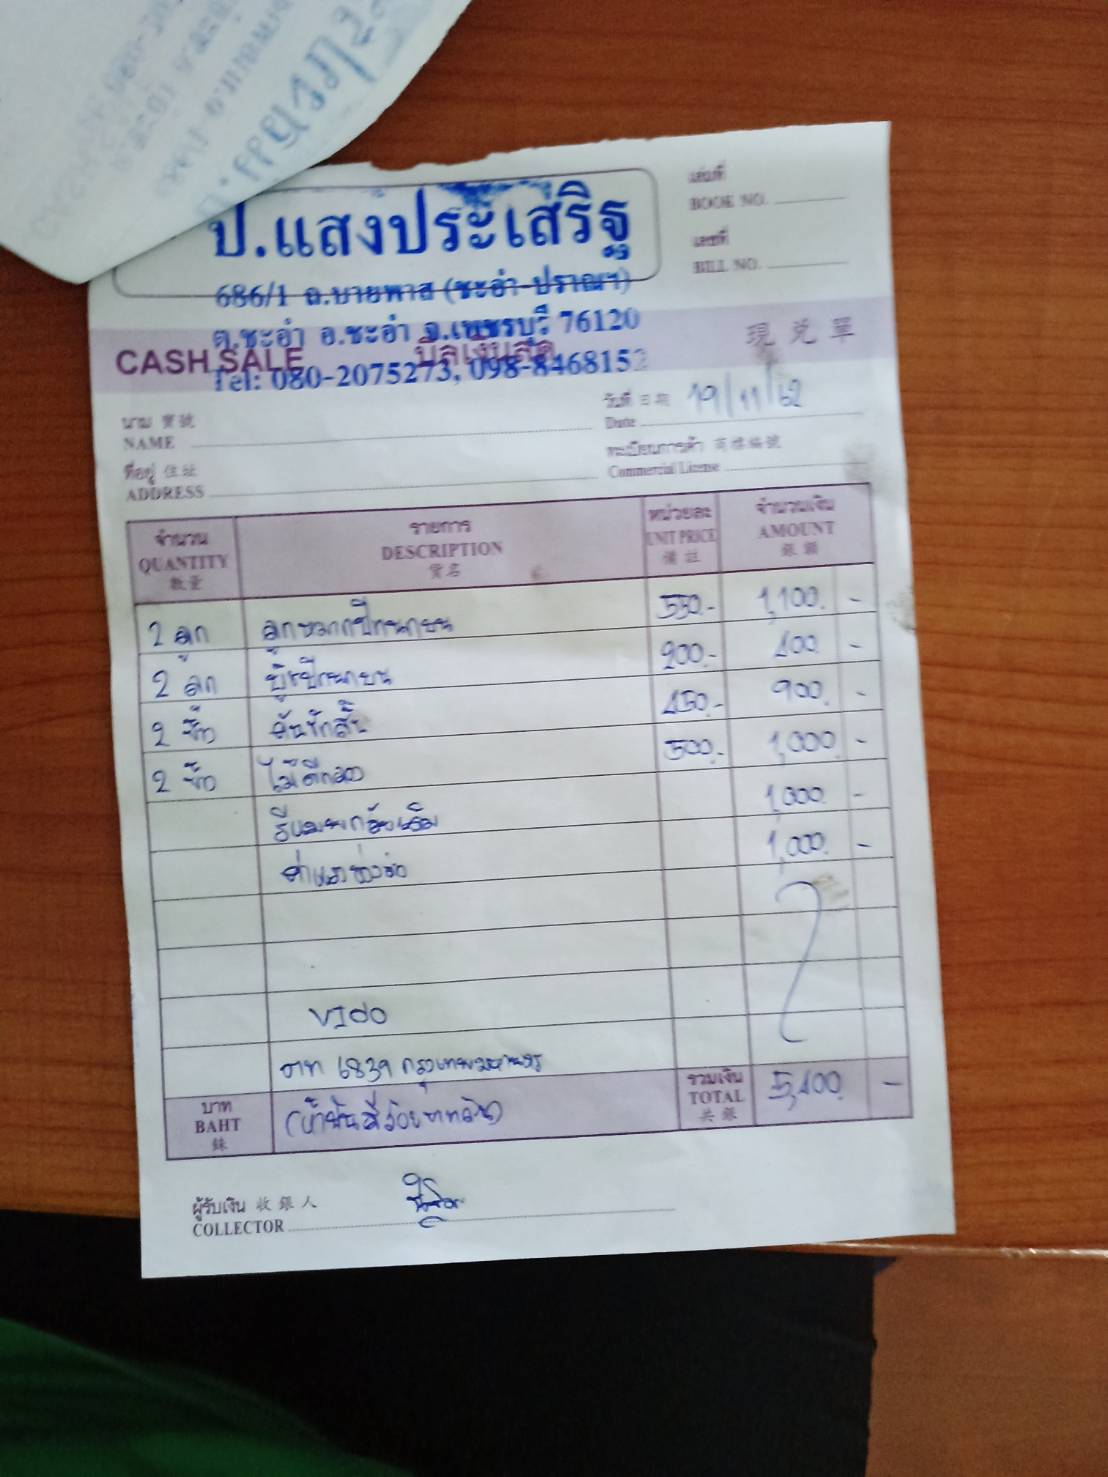 ป.แสงประเสริฐ
686/1 ถ.บายพาส (ชะอำ-ปราณฯ)
ต.ชะอำ อ.ชะอำ จ.เพชรบุรี 76120
Tel: 080-2075273, 098-8468152
เล่มที่
BOOK NO.
เลขที่
BILL NO.
CASH SALE บิลเงินสด 現兌單
นาม 寶號
NAME
วันที่ 日期 19/11/62
Date
ที่อยู่ 住址
ADDRESS
ทะเบียนการค้า 商標編號
Commercial License
จำนวน รายการ หน่วยละ จำนวนเงิน
QUANTITY DESCRIPTION UNIT PRICE AMOUNT
數量 貨名 備註 銀額
2 ลูก ลูกหมากปีกนกบน 550.- 1,100.-
2 ลูก บู๊ชปีกนกบน 200.- 400.-
2 ตัว คันชักสั้น 450.- 900.-
2 ตัว ไม้ตีกลอง 500.- 1,000.-
1,000.-
1,000.-
VIGO
6839 กรุงเทพมหานคร
บาท (ห้าพันสี่ร้อยบาทถ้วน) รวมเงิน 5,400.-
BAHT TOTAL
銖 共銀
ผู้รับเงิน 收銀人
COLLECTOR